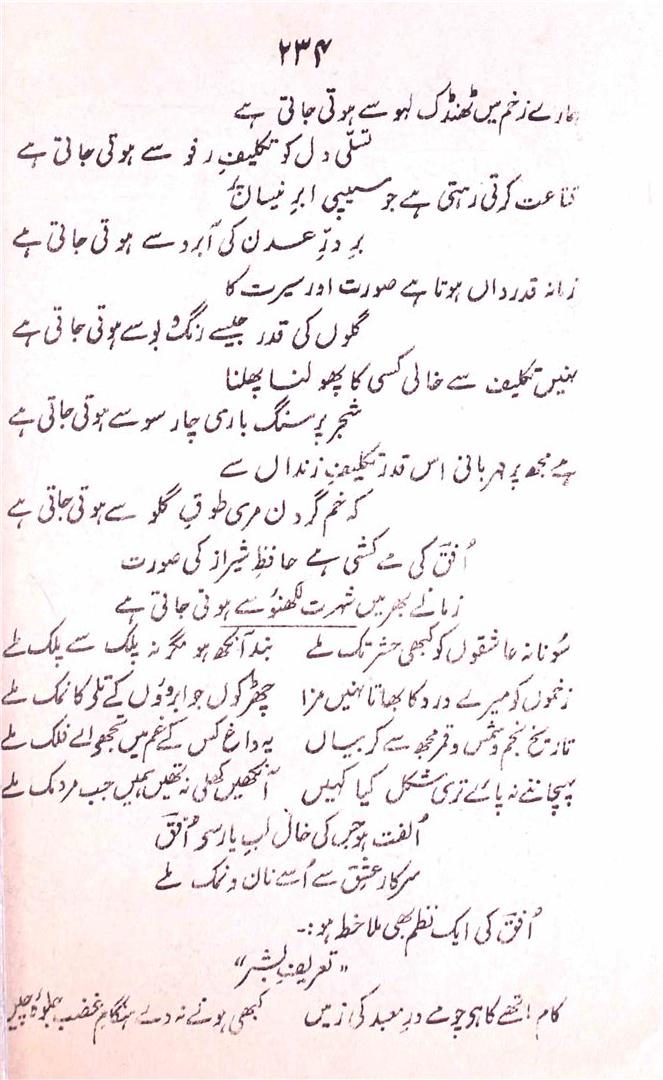 ۲۳۴
ہمارے زخم میں ٹھنڈک لہو سے ہوتی جاتی ہے
تسلّی دل کو تکلیفِ رفو سے ہوتی جاتی ہے
قناعت کرتی رہتی ہے جو سیپی ابرِ نیساں پر
بر درِّ عدن کی آبرو سے ہوتی جاتی ہے
زمانہ قدرداں ہوتا ہے صورت اور سیرت کا
گلوں کی قدر جیسے رنگ و بو سے ہوتی جاتی ہے
نہیں تکلیف سے خالی کسی کا پھولنا پھلنا
شجر پر سنگ باری چار سو سے ہوتی جاتی ہے
ہے مجھ پر مہربانی اس قدر تکلیفِ زنداں سے
کہ خم گردن مری طوقِ گلو سے ہوتی جاتی ہے
اُفقؔ کی مے کشی ہے حافظِ شیراز کی صورت
زمانے بھر میں شہرت لکھنؤ سے ہوتی جاتی ہے
سُونا نہ عاشقوں کو کبھی حشر تک ملے بند آنکھ ہو مگر نہ پلک سے پلک ملے
زخموں کو میرے درد کا بھاتا نہیں مزا چھڑکوں جو ابروؤں کے تلے کا نمک ملے
تاریخِ نجم و شمس و قمر مجھ سے کر بیاں یہ داغ کس کے غم میں تجھ اے فلک ملے
پہچاننے نہ پائے تری شکل کیا کہیں آنکھیں کھلی نہ تھیں ہمیں جب مردمک ملے
اُلفت ہو جس کی خالِ لبِ یار سے اُفقؔ
سرکارِ عشق سے اُسے نان و نمک ملے
اُفقؔ کی ایک نظم بھی ملاحظہ ہو:۔
"تعریفِ بشر"
کام اچھے کا ہی چومے درِ معبد کی زمیں کبھی ہونے نہ دے ہنگامِ غضب